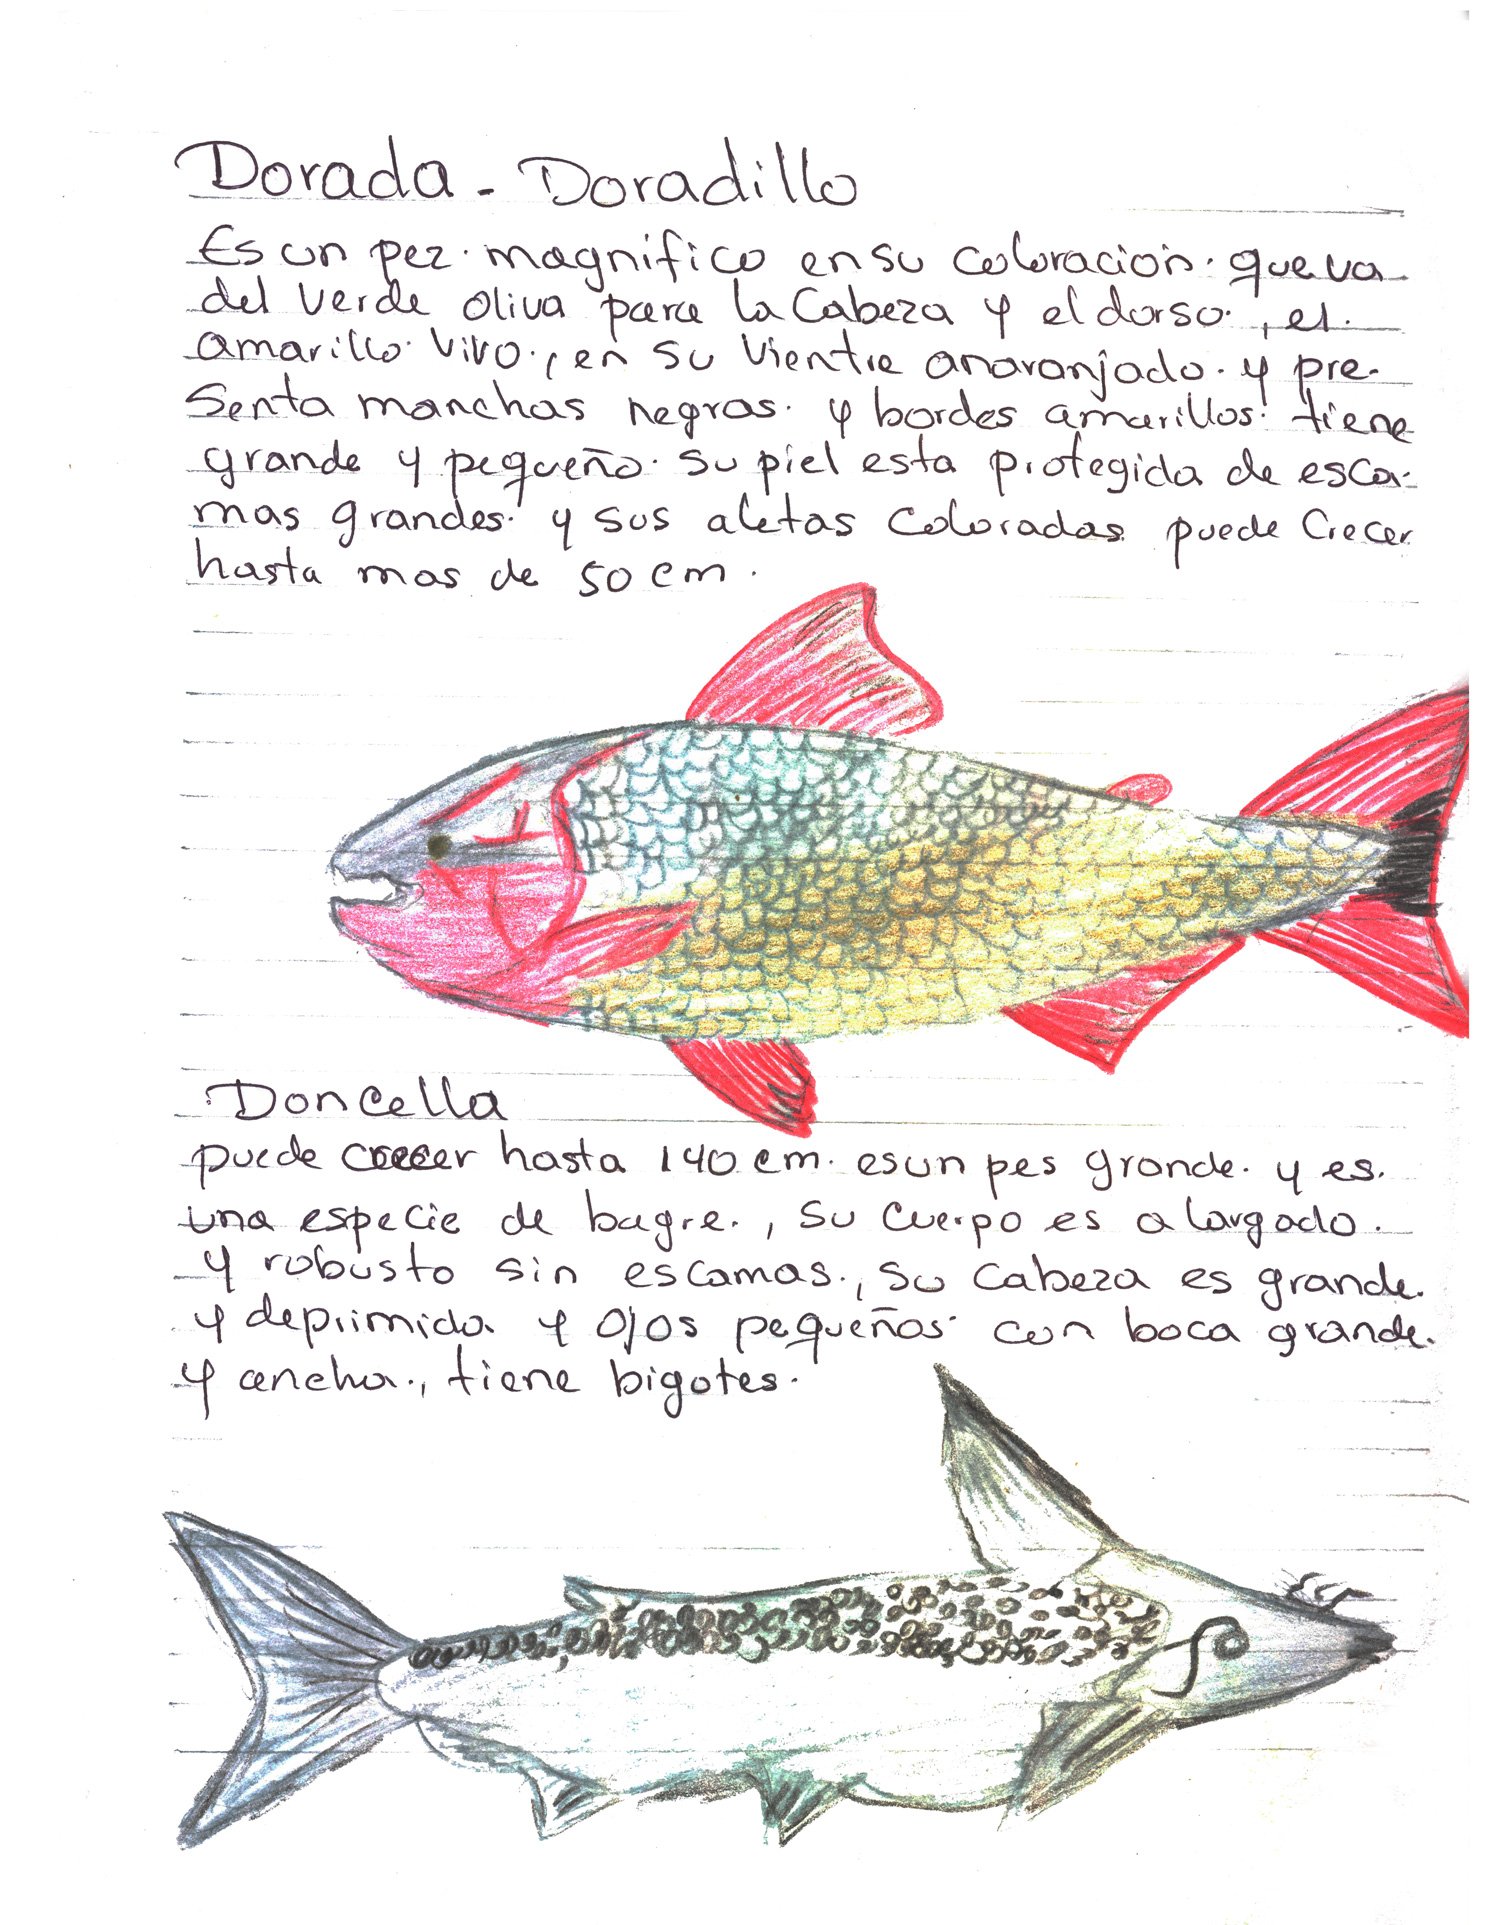 Dorada - Doradillo
Es un pez. magnifico en su coloración. que va
del verde oliva para la Cabeza y el dorso. , el.
amarillo. vivo. , en su vientre anaranjado. y pre-
senta manchas negras. y bordes amarillos. tiene
grande y pequeño. su piel esta protegida de esca-
mas grandes. y sus aletas coloradas puede crecer
hasta mas de 50 cm.
Doncella
puede crecer hasta 140 cm. es un pes grande. y es.
una especie de bagre. , su cuerpo es alargado.
y robusto sin escamas. , su cabeza es grande.
y deprimida y ojos pequeños. con boca grande.
y ancha. , tiene bigotes.